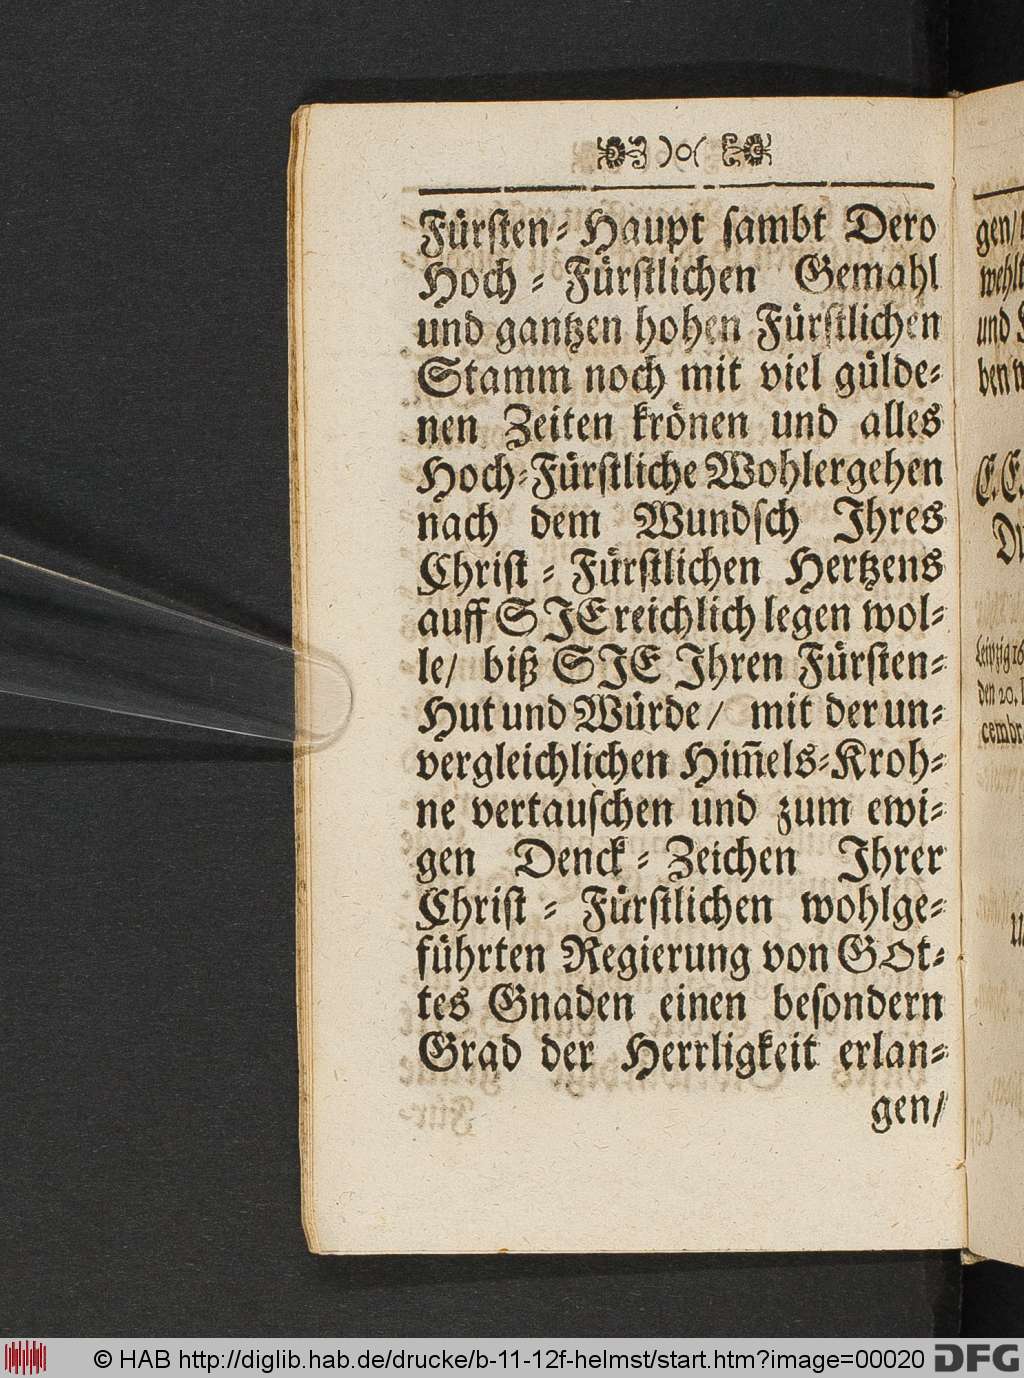 Fürſten-Haupt ſambt Dero
Hoch-Fürſtlichen Gemahl
und gantzen hohen Fürſtlichen
Stamm noch mit viel gülde-
nen Zeiten krönen und alles
Hoch-Fürſtliche Wohlergehen
nach dem Wundſch Ihres
Chriſt-Fürſtlichen Hertzens
auff SIE reichlich legen wol-
le/ biß SIE Ihren Fürſten-
Hut und Würde/ mit der un-
vergleichlichen Him̃els-Kroh-
ne vertauſchen und zum ewi-
gen Denck-Zeichen Ihrer
Chriſt-Fürſtlichen wohlge-
führten Regierung von GOt-
tes Gnaden einen beſondern
Grad der Herrligkeit erlan-
gen/
gen/
wehlt
und
ben
E. E.
Leipzig
den 20.
cembr
© HAB http://diglib.hab.de/drucke/b-11-12f-helmst/start.htm?image=00020
DFG